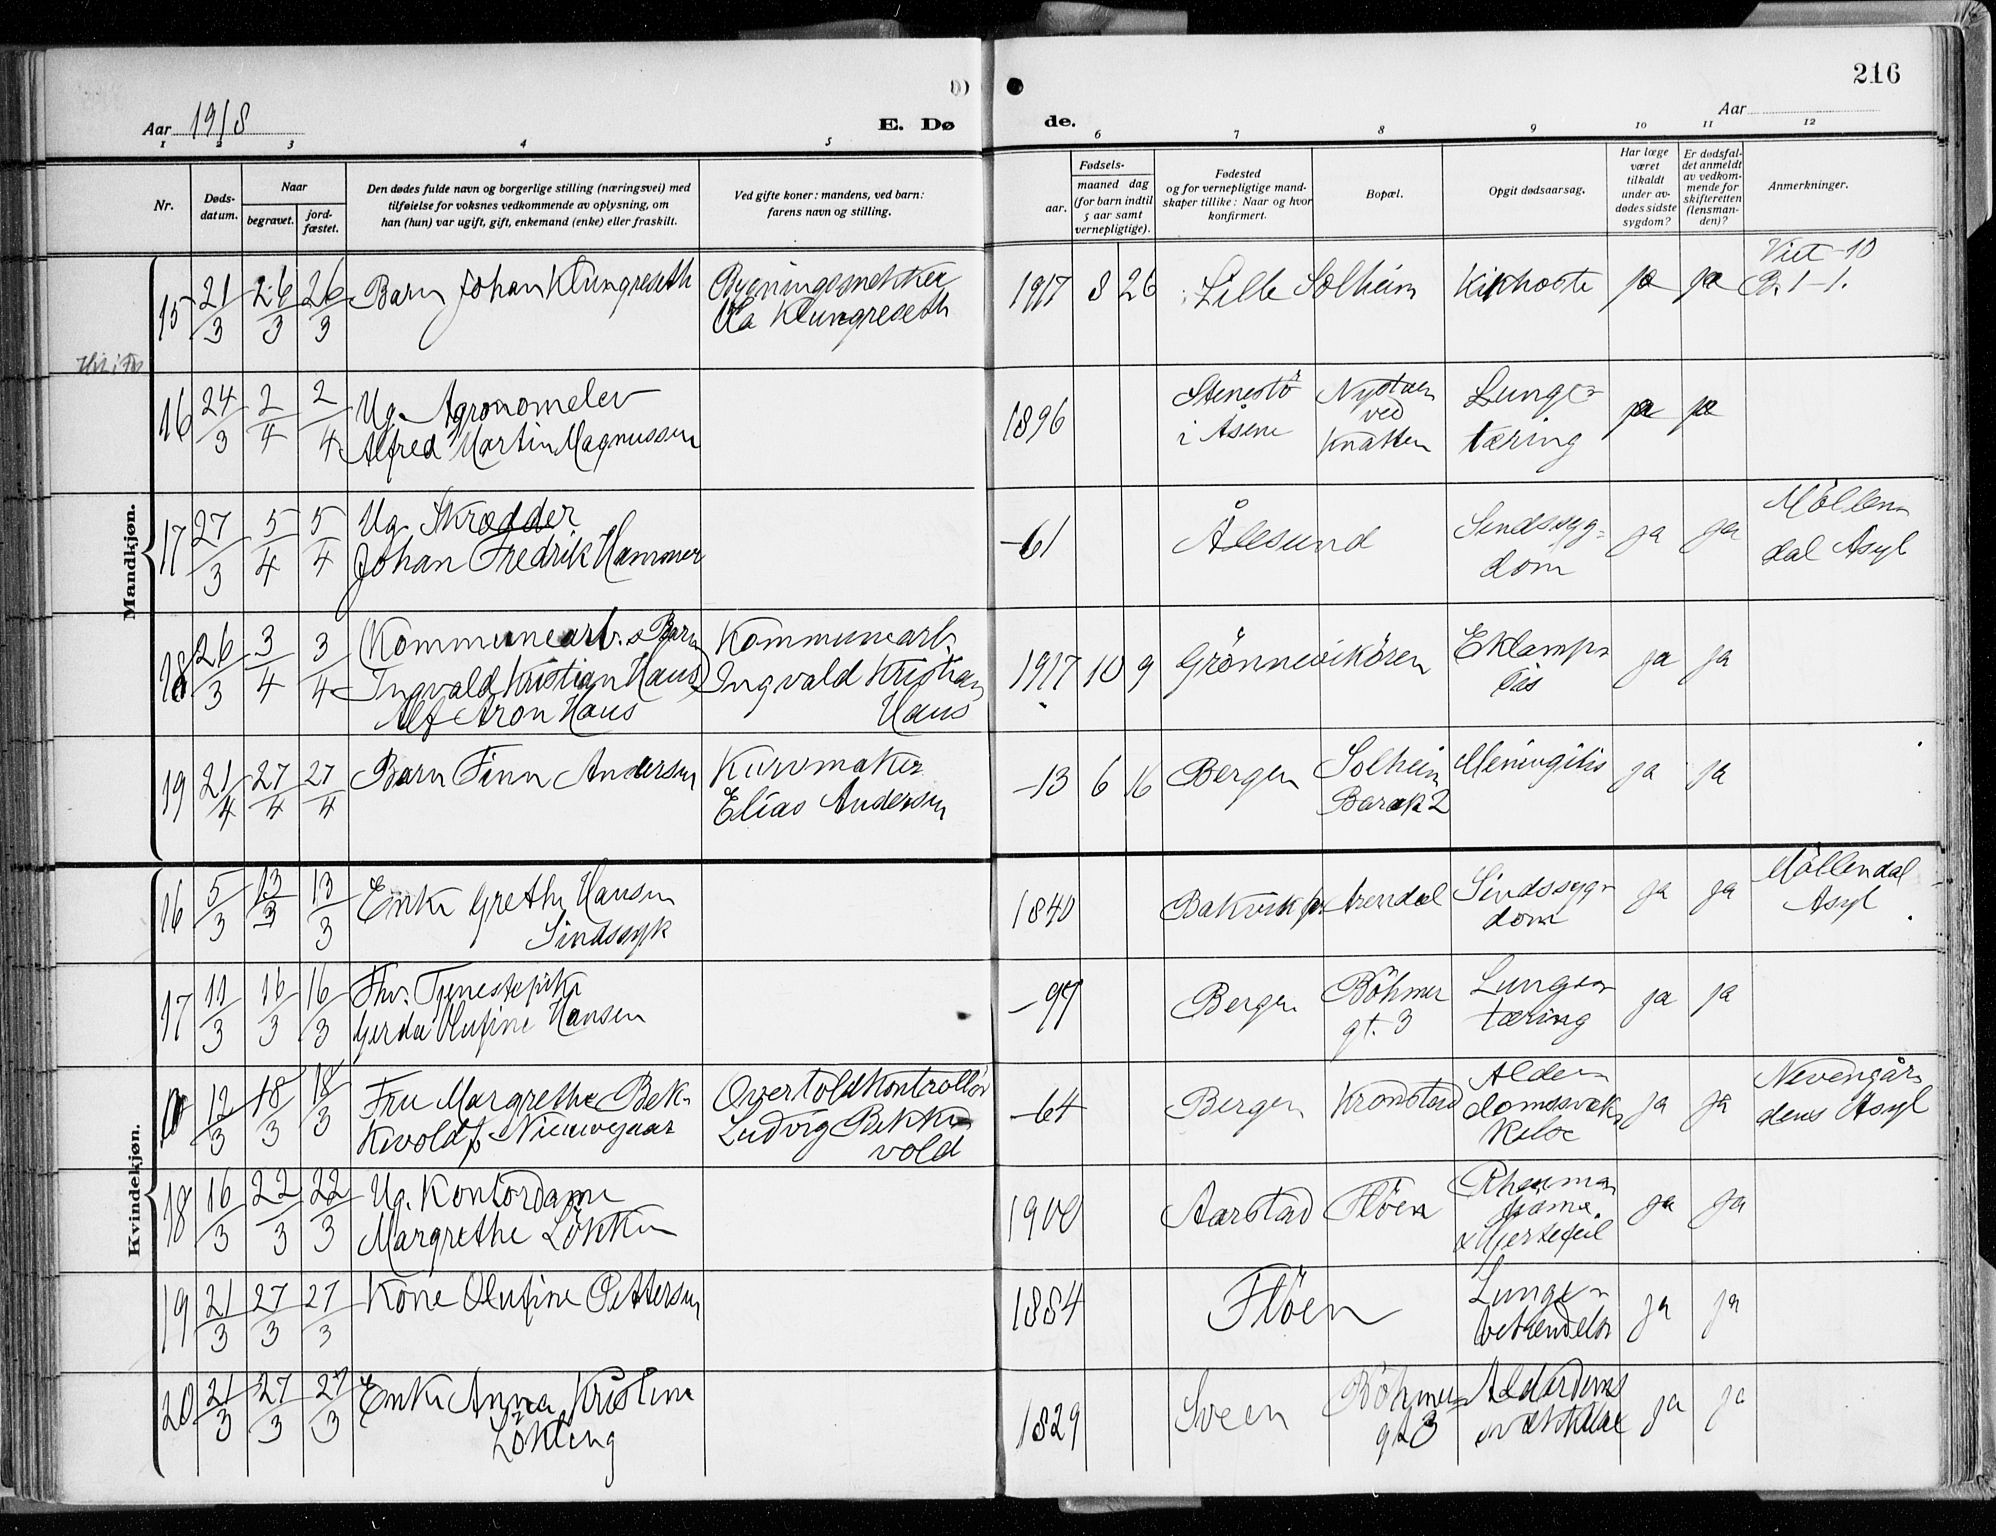 216
Aar 1918
E. Dø
de.
Aar
1 2 3 4 5 6 7 8 9 10 11 12
Nr.
Døds-
datum.
Naar
begravet.
jord-
fæstet.
Den dødes fulde navn og borgerlige stilling (næringsvei) med
tilføielse for voksnes vedkommende av oplysning, om
han (hun) var ugift, gift, enkemand (enke) eller fraskilt.
Ved gifte koner: mandens, ved barn:
farens navn og stilling.
Fødsels-
aar.
maaned dag
(for barn indtil
5 aar samt
vernepligtige).
Fødested
og for vernepligtige mand-
skaper tillike: Naar og hvor
konfirmert.
Bopæl.
Opgit dødsaarsag.
Har læge
været
tilkaldt
under av-
dødes sidste
sygdom?
Er dødsfal-
det anmeldt
av vedkom-
mende for
skifteretten
(lensman-
den)?
Anmerkninger.
Mandkjøn.
15 21/3 26/3 26/3 Barn Johan Klungreseth
Bygningssnekker
Klungreseth
1917 8 26 Lille Solheim Kikhoste ja ja
16 24/3 2/4 2/4 Ug. Agronomelev
Alfred Martin Magnussen
1896 Stenestö
i Åsene
Nystuen
ved
Knatten
Lunge-
tæring
ja ja
17 27/3 5/4 5/4 Ug. Skrædder
Johan Fredrik Hammer
-61 Ålesund Sindssyg-
dom
ja ja Möllen
dal Asyl
18 26/3 3/4 3/4 Kommunearb.s Barn
Ingvald Kristian Haus
Alf Aron Haus
Kommunearb.
Ingvald Kristian
Haus
1917 10 9 Grönnevikören Eklamp-
sis
ja ja
19 21/4 27/4 27/4 Barn Finn Andersen
Kurvmaker
Elias Andersen
-13 6 16 Bergen Solheim
Barak 2
Meningitis ja ja
Kvindekjøn.
16 5/3 13/3 13/3 Enke Grethe Hansen
Sindssyk
1840 Arendal Sindssyg-
dom
ja ja Möllendal
Asyl
17 11/3 16/3 16/3 Fhv. Tjenestepike
Gerda Olufine Hansen
-97 Bergen Böhmer
gt. 3
Lunge-
tæring
ja ja
12/3 18/3 18/3 Fru Margrethe Bek-
kvold f. Nieuwejaar
Overtoldkontrollör
Ludvig Bekke
vold
-64 Bergen Kronstad Alder-
domssvæk-
kelse
ja ja Nevengår-
dens Asyl
18 16/3 22/3 22/3 Ug. Kontordame
Margrethe Lökken
1900 Aarstad Flöen Rheuma-
& Hjertefeil
ja ja
19 21/3 27/3 27/3 Kone Olufine Pettersen
1884 Flöen Lunge-
betændelse
ja ja
20 21/3 27/3 27/3 Enke Anna Kristine
Lökling
1829 Sveen Böhmer-
gt 3
Alderdoms
svækkelse
ja ja